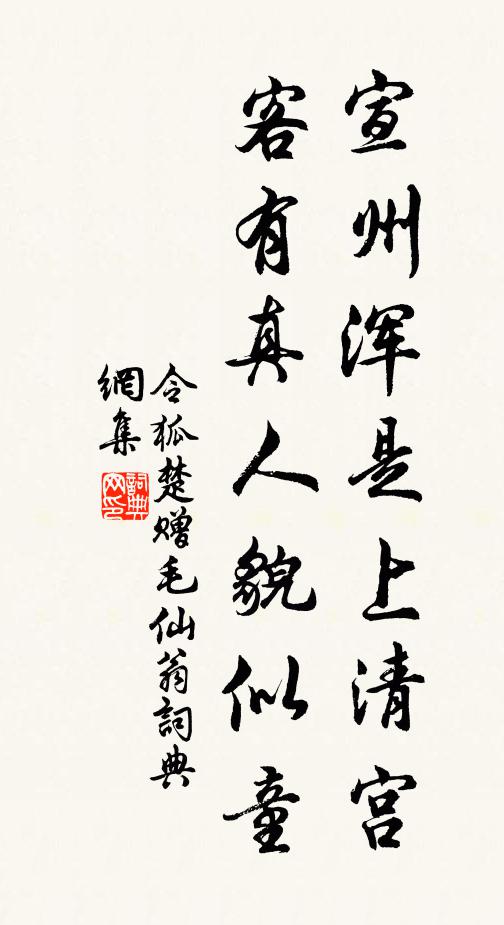 宣州浑是上清宫
客有真人貌似童
令狐楚赠毛仙翁詞典
網集
詞典网印